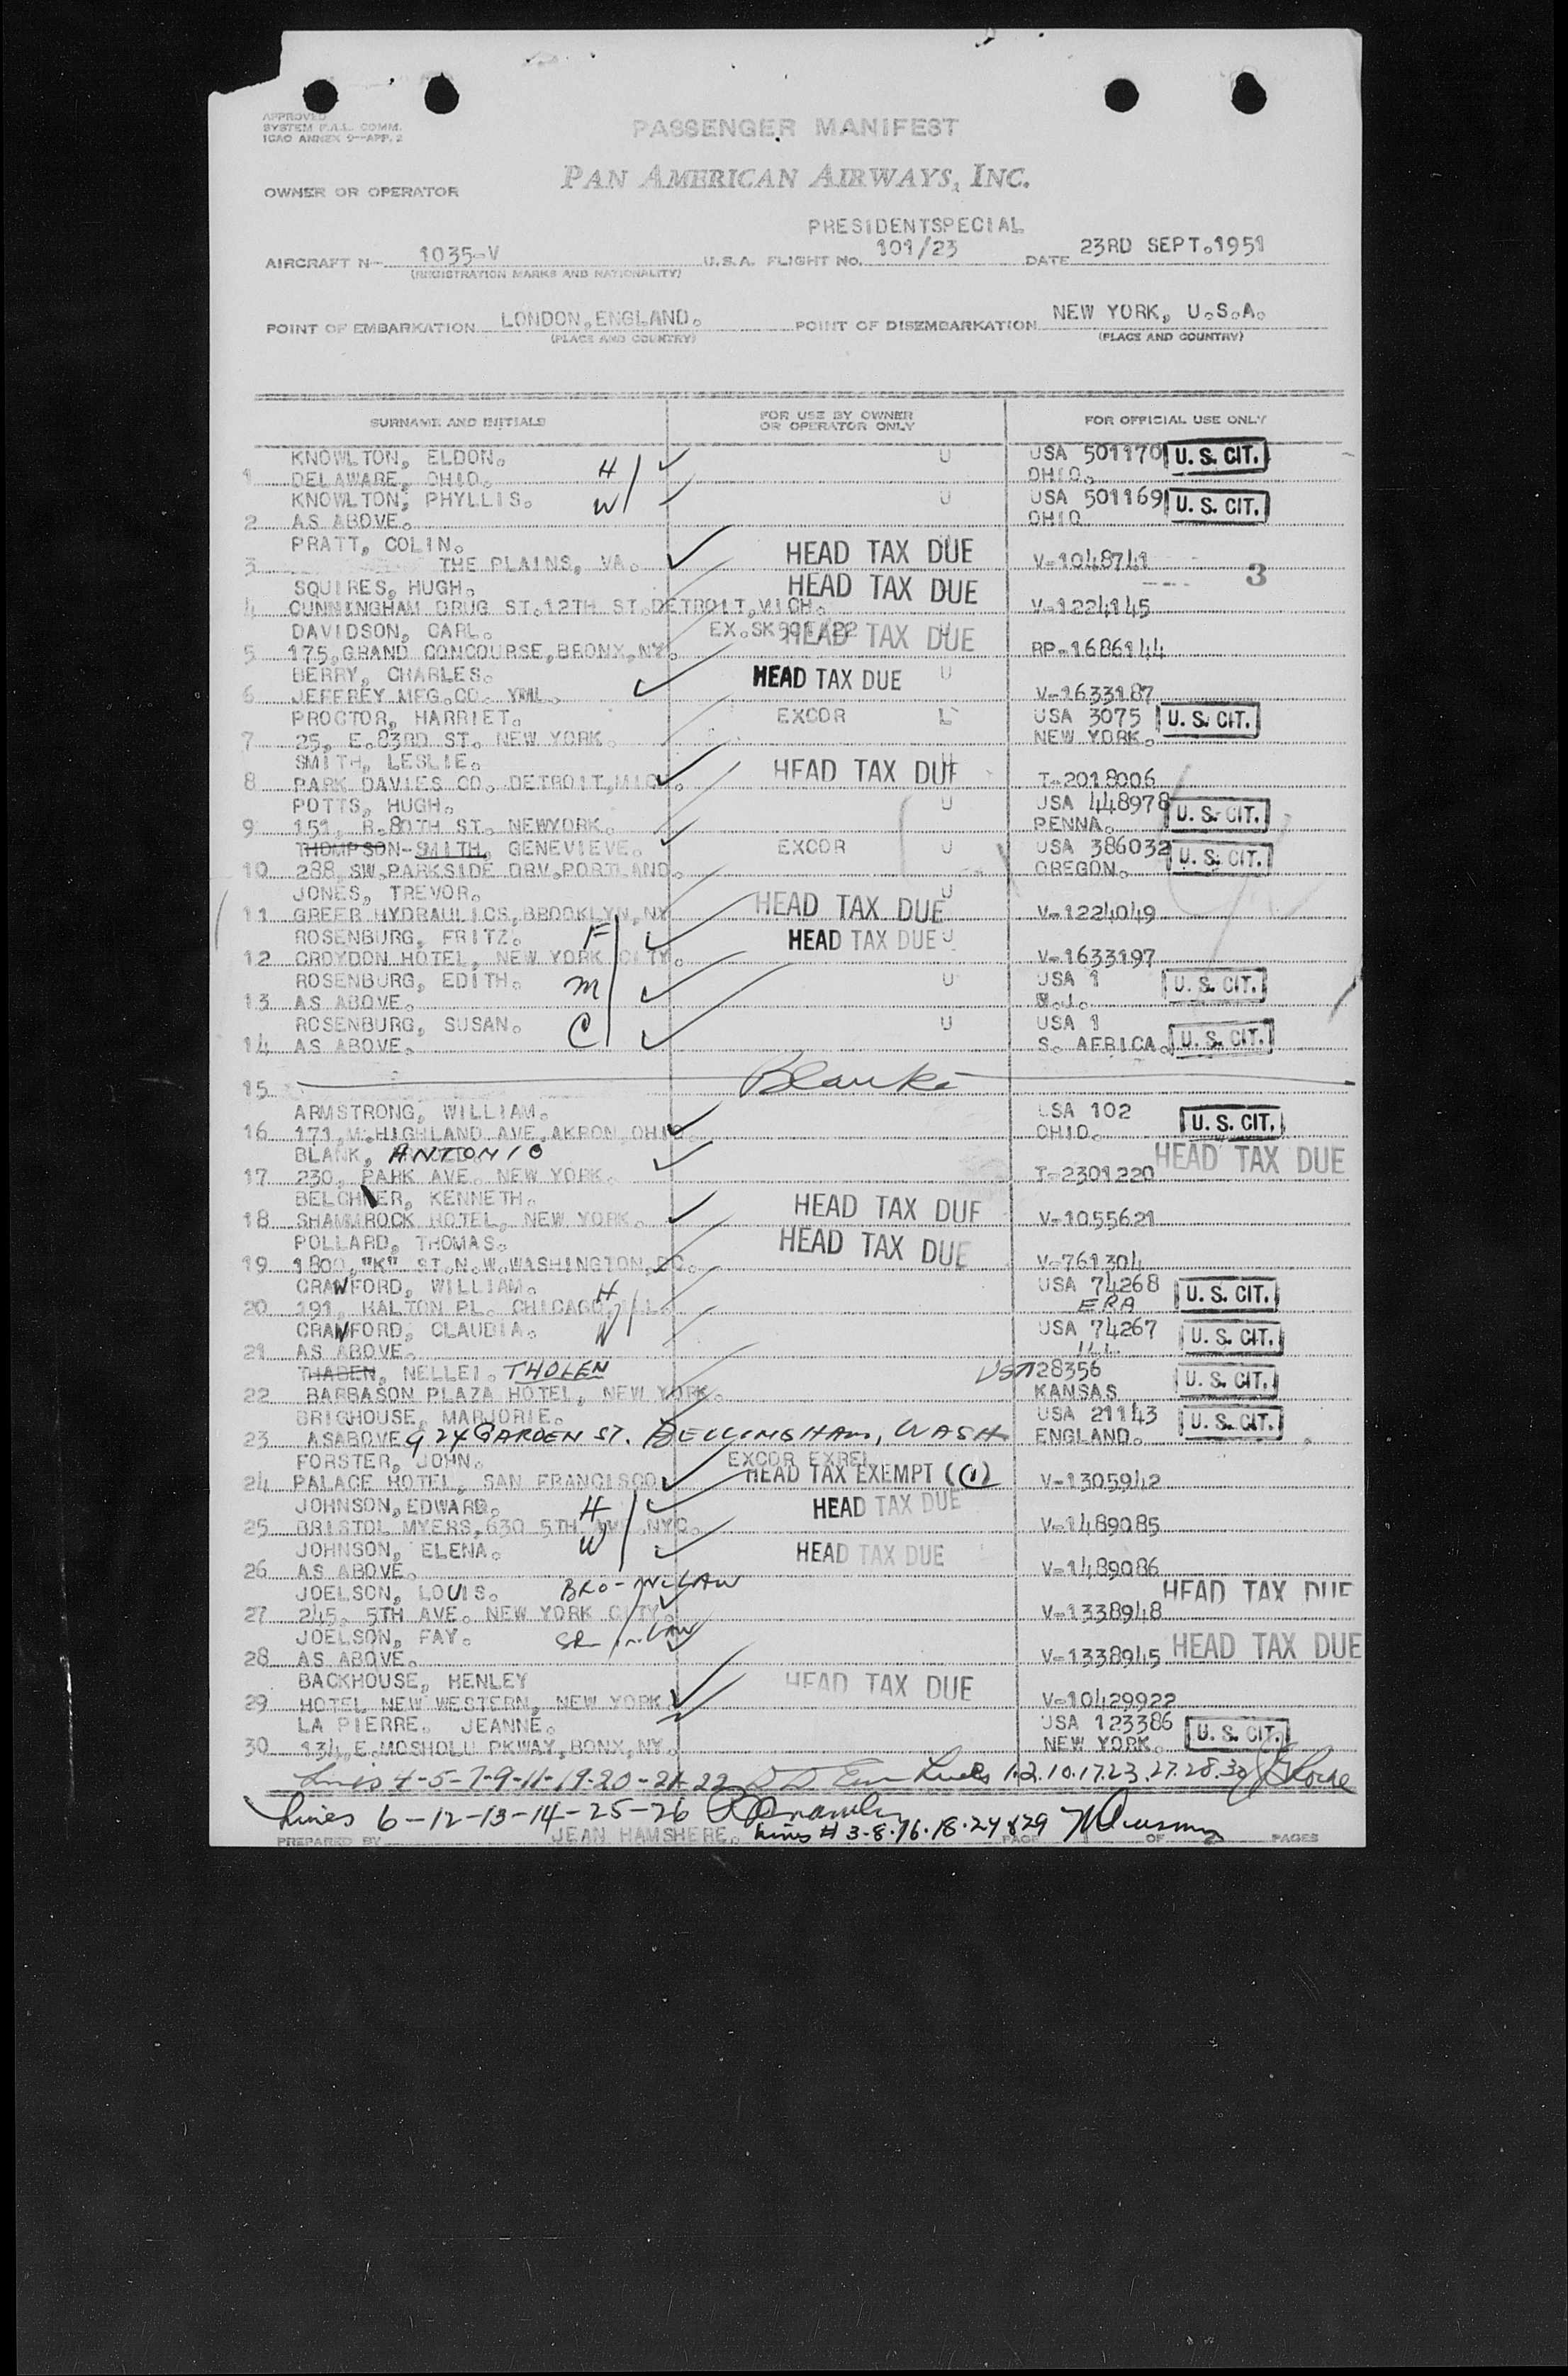 APPROVED
SYSTEM F.A.L. COMM.
ICAO ANNEX 9—APP. 2
PASSENGER MANIFEST
OWNER OR OPERATOR
PAN AMERICAN AIRWAYS, INC.
PRESIDENTSPECIAL
AIRCRAFT N— 1035-V U.S.A. FLIGHT NO. 101/23 DATE 23RD SEPT.1951
(REGISTRATION MARKS AND NATIONALITY)
POINT OF EMBARKATION LONDON,ENGLAND. POINT OF DISEMBARKATION NEW YORK, U.S.A.
(PLACE AND COUNTRY) (PLACE AND COUNTRY)
SURNAME AND INITIALS FOR USE BY OWNER OR OPERATOR ONLY FOR OFFICIAL USE ONLY
KNOWLTON, ELDON. H U USA 501170 U. S. CIT.
1 DELAWARE, OHIO. OHIO.
KNOWLTON, PHYLLIS. W U USA 501169 U. S. CIT.
2 AS ABOVE. OHIO
PRATT, COLIN. HEAD TAX DUE
3 THE PLAINS, VA. V-1048741 3
SQUIRES, HUGH. HEAD TAX DUE
4 CUNNINGHAM DRUG ST.12TH ST.DETROIT,MICH. V-1224145
DAVIDSON, CARL. EX.SK501/22 HEAD TAX DUE
5 175,GRAND CONCOURSE,BRONX,NY. RP-1686144
BERRY, CHARLES. HEAD TAX DUE U
6 JEFFREY MFG.CO. V-1633187
PROCTOR, HARRIET. EXCOR USA 3075 U. S. CIT.
7 25, E.83RD ST. NEW YORK. NEW YORK.
SMITH, LESLIE. HEAD TAX DUE
8 PARK DAVIES CO. DETROIT,MICH. T-2018006
POTTS, HUGH. U USA 448978 U. S. CIT.
9 151, R.80TH ST. NEWYORK. PENNA.
THOMPSON-SMITH, GENEVIEVE. EXCOR U USA 386032 U. S. CIT.
10 288,SW.PARKSIDE DRV.PORTLAND. OREGON.
JONES, TREVOR. U HEAD TAX DUE
11 GREER HYDRAULICS,BROOKLYN,NY V-1224049
ROSENBURG, FRITZ. F HEAD TAX DUE U
12 CROYDON HOTEL, NEW YORK CITY. V-1633197
ROSENBURG, EDITH. M U USA 1 U. S. CIT.
13 AS ABOVE. N.J.
ROSENBURG, SUSAN. C U USA 1
14 AS ABOVE. S. AFRICA. U. S. CIT.
15 Blank
ARMSTRONG, WILLIAM. USA 102 U. S. CIT.
16 171,N.HIGHLAND AVE,AKRON,OHIO. OHIO.
BLANK, ANTONIO HEAD TAX DUE
17 230, PARK AVE. NEW YORK. T-2301220
BELCHER, KENNETH. HEAD TAX DUE
18 SHAMMROCK HOTEL, NEW YORK. V-1055621
POLLARD, THOMAS. HEAD TAX DUE
19 1800,"K" ST.N.W.WASHINGTON,DC. V-761304
CRAWFORD, WILLIAM. H USA 74268 U. S. CIT.
20 191, HALTON PL. CHICAGO,ILL. ERA
CRAWFORD, CLAUDIA. W USA 74267 U. S. CIT.
21 AS ABOVE. ILL.
THADEN, NELLEI. THOLEN USA 128356 U. S. CIT.
22 BARBASON PLAZA HOTEL, NEW YORK. KANSAS
BRIGHOUSE, MARJORIE. USA 21143 U. S. CIT.
23 ASABOVE 924 GARDEN ST. BELLINGHAM, WASH ENGLAND.
FORSTER, JOHN. EXCOR EXREI HEAD TAX EXEMPT (1)
24 PALACE HOTEL, SAN FRANCISCO V-1305942
JOHNSON,EDWARD. H HEAD TAX DUE
25 BRISTOL MYERS,630 5TH AVE.NYC. V-1489085
JOHNSON, ELENA. W HEAD TAX DUE
26 AS ABOVE. V-1489086
JOELSON, LOUIS. BRO-IN-LAW HEAD TAX DUE
27 245, 5TH AVE. NEW YORK CITY. V-1338948
JOELSON, FAY. SR-in-LAW
28 AS ABOVE. V-1338945 HEAD TAX DUE
BACKHOUSE, HENLEY HEAD TAX DUE
29 HOTEL NEW WESTERN, NEW YORK V-10429922
LA PIERRE. JEANNE. USA 123386 U. S. CIT.
30 134,E.MOSHOLU PKWAY,BONX,NY. NEW YORK.
Lines 4-5-7-9-11-19-20-21-22 Lines 1.2.10.17.23.27.28.30
Lines 6-12-13-14-25-26
PREPARED BY JEAN HAMSHERE. Lines # 3-8-16-18-24 & 29 PAGE OF PAGES